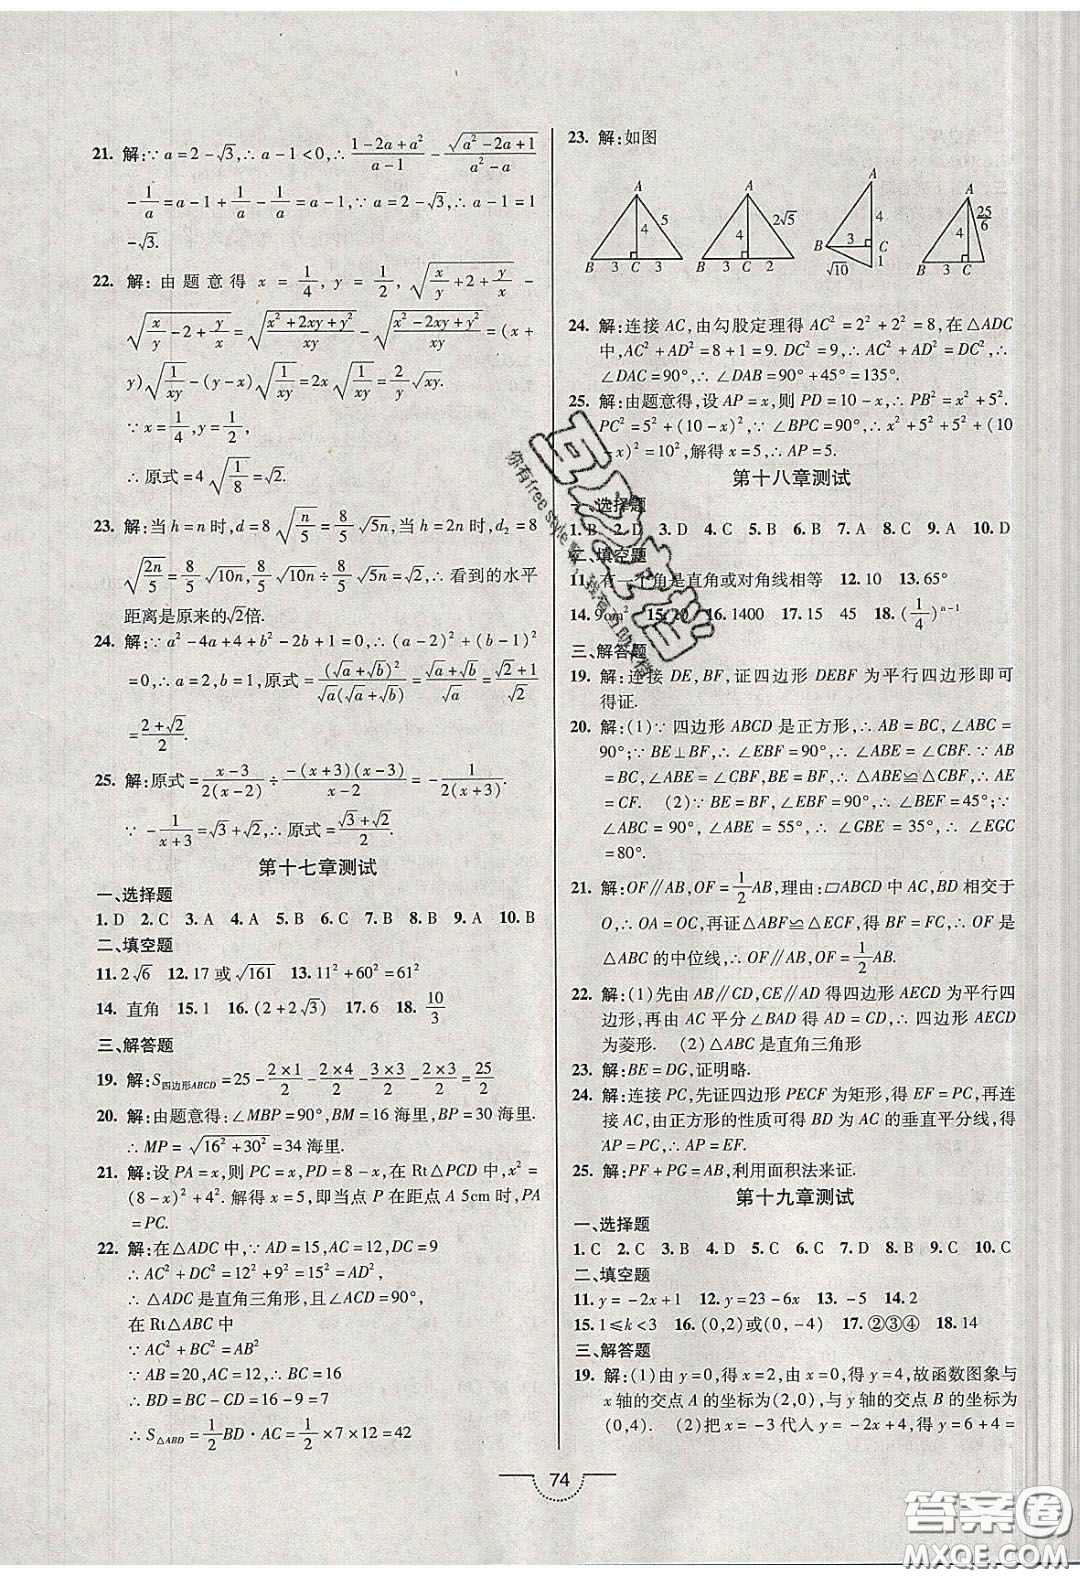 21. 解:∵a=2-√3,∴a-1<0,∴(1-2a+a²)/(a-1) - √(a²-2a+1)/(a²-a)
-1/a=a-1+1/a-1/a=a-1,∵a=2-√3,∴a-1=1
-√3.
22. 解:由题意得 x=1/4,y=1/2,√(x/y+2+y/x)-
√(x/y-2+y/x)=√((x²+2xy+y²)/xy)-√((x²-2xy+y²)/xy)=(x+
y)√(1/xy)-(y-x)√(1/xy)=2x√(1/xy)=2/y√xy.
∵x=1/4,y=1/2,
∴原式=4√(1/8)=√2.
23. 解:当h=n时,d=8√(n/5)=8/5√5n,当h=2n时,d₂=8
√(2n/5)=8/5√10n,8/5√10n÷8/5√5n=√2,∴看到的水平
距离是原来的√2倍.
24. 解:∵a²-4a+4+b²-2b+1=0,∴(a-2)²+(b-1)²
=0,∴a=2,b=1,原式=(√a+√b)²/(√a(√a+√b))=(√a+√b)/√a=(√2+1)/√2
=(2+√2)/2.
25. 解:原式=(x-3)/(2(x-2))÷(-(x+3)(x-3))/(x-2)=-1/(2(x+3)).
∵-1/(x+3)=√3+√2,∴原式=(√3+√2)/2.
第十七章测试
一、选择题
1. D 2. C 3. A 4. A 5. B 6. C 7. B 8. C 9. A 10. B
二、填空题
11. 2√6 12. 17或√161 13. 11²+60²=61²
14. 直角 15. 1 16. (2+2√3) 17. 6 18. 10/3
三、解答题
19. 解:S四边形ABCD=25-(2×1)/2-(2×4)/2-(3×3)/2-(2×3)/2=25/2
20. 解:由题意得:∠MBP=90°,BM=16海里,BP=30海里.
∴MP=√(16²+30²)=34海里.
21. 解:设PA=x,则PC=x,PD=8-x,在Rt△PCD中,x²=
(8-x)²+4². 解得x=5,即当点P在距点A 5cm时,PA
=PC.
22. 解:在△ADC中,∵AD=15,AC=12,DC=9
∴AC²+DC²=12²+9²=15²=AD²,
∴△ADC是直角三角形,且∠ACD=90°,
在Rt△ABC中
∵AC²+BC²=AB²
∵AB=20,AC=12,∴BC=16
∴BD=BC-CD=16-9=7
∴S△ABD=1/2BD·AC=1/2×7×12=42
23. 解:如图
A 4 5 B 3 C 3
A 4 2√5 B 3 C 2
A 4 B 3 C 1 √10
A 4 25/6 B 3 C
24. 解:连接AC,由勾股定理得AC²=2²+2²=8,在△ADC
中,AC²+AD²=8+1=9. DC²=9,∴AC²+AD²=DC²,∴
∠DAC=90°,∴∠DAB=90°+45°=135°.
25. 解:由题意得,设AP=x,则PD=10-x,∴PB²=x²+5².
PC²=5²+(10-x)²,∵∠BPC=90°,∴x²+5²+5²+(10
-x)²=10²,解得x=5,∴AP=5.
第十八章测试
一、选择题
1. B 2. D 3. D 4. C 5. B 6. B 7. A 8. C 9. A 10. D
二、填空题
11. 有一个角是直角或对角线相等 12. 10 13. 65°
14. 9cm² 15. 20 16. 1400 17. 15 45 18. (1/4)ⁿ⁻¹
三、解答题
19. 解:连接DE,BF,证四边形DEBF为平行四边形即可
得证.
20. 解:(1)∵四边形ABCD是正方形,∴AB=BC,∠ABC=
90°;∵BE⊥BF,∴∠EBF=90°,∴∠ABE=∠CBF. ∵AB
=BC,∠ABE=∠CBF,BE=BF,∴△ABE≌△CBF,∴AE
=CF. (2)∵BE=BF,∠EBF=90°,∴∠BEF=45°;∵
∠ABC=90°,∠ABE=55°,∴∠GBE=35°,∴∠EGC
=80°.
21. 解:OF∥AB,OF=1/2AB,理由:▱ABCD中AC,BD相交于
O,∴OA=OC,再证△ABF≌△ECF,得BF=FC,∴OF是
△ABC的中位线,∴OF∥AB,OF=1/2AB.
22. 解:(1)先由AB∥CD,CE∥AD得四边形AECD为平行四
边形,再由AC平分∠BAD得AD=CD,∴四边形AECD
为菱形. (2)△ABC是直角三角形
23. 解:BE=DG,证明略.
24. 解:连接PC,先证四边形PECF为矩形,得EF=PC,再连
接AC,由正方形的性质可得BD为AC的垂直平分线,得
AP=PC,∴AP=EF.
25. 解:PF+PG=AB,利用面积法来证.
第十九章测试
一、选择题
1. C 2. C 3. B 4. D 5. D 6. C 7. D 8. B 9. C 10. C
二、填空题
11. y=-2x+1 12. y=23-6x 13. -5 14. 2
15. 1≤k<3 16. (0,2)或(0,-4) 17. ②③④ 18. 14
三、解答题
19. 解:(1)由y=0,得x=2,由x=0,得y=4,故函数图象与
x轴的交点A的坐标为(2,0),与y轴的交点B的坐标为
(0,4). (2)把x=-3代入y=-2x+4,得y=6+4=
74
答案圈
MXQE.COM